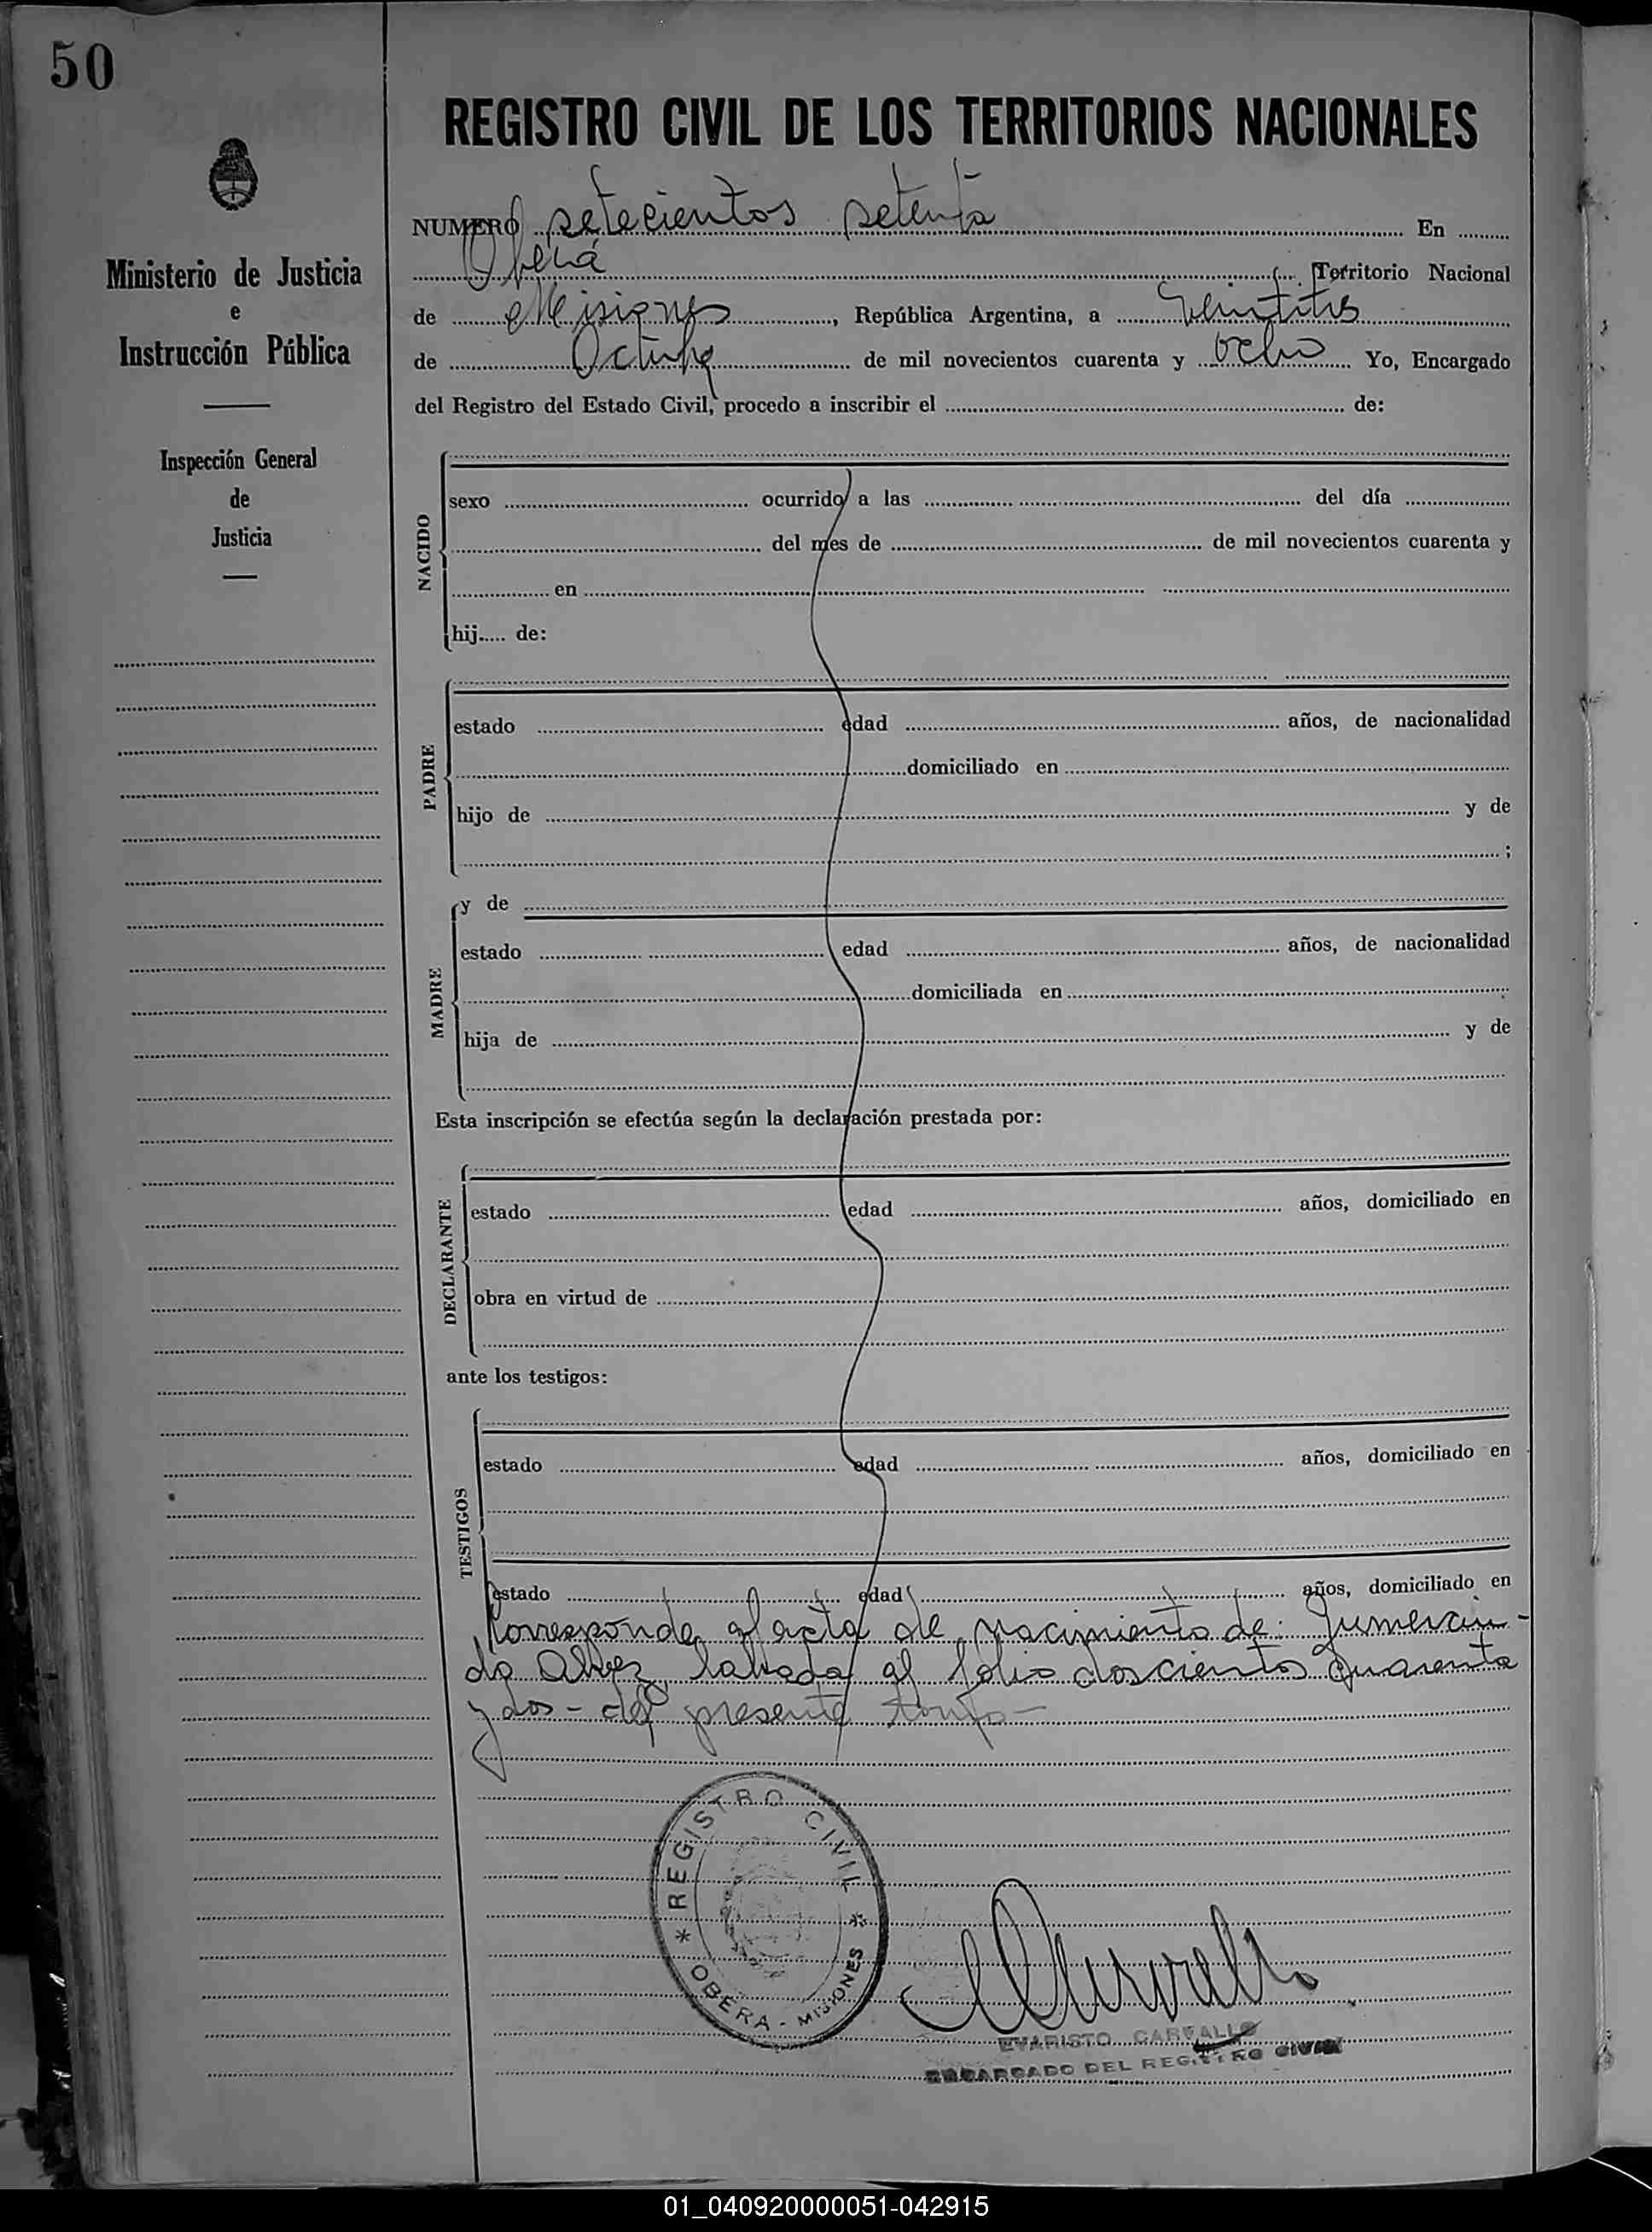 50
REGISTRO CIVIL DE LOS TERRITORIOS NACIONALES
Ministerio de Justicia
e
Instrucción Pública
Inspección General
de
Justicia
NUMERO setecientos setenta En
Oberá Territorio Nacional
de Misiones, República Argentina, a veintitrés
de Octubre de mil novecientos cuarenta y ocho Yo, Encargado
del Registro del Estado Civil, procedo a inscribir el de:
NACIDO
sexo ocurrido a las del día
del mes de de mil novecientos cuarenta y
en
hij..... de:
PADRE
estado edad años, de nacionalidad
domiciliado en
hijo de y de
;
MADRE
y de
estado edad años, de nacionalidad
domiciliada en
hija de y de
Esta inscripción se efectúa según la declaración prestada por:
DECLARANTE
estado edad años, domiciliado en
obra en virtud de
ante los testigos:
TESTIGOS
estado edad años, domiciliado en
estado edad años, domiciliado en
Corresponde al acta de nacimiento de: Gumercin-
do Alvez labrada al folio doscientos cuarenta
y dos - del presente tomo -
* REGISTRO CIVIL *
OBERA - MISIONES
EVARISTO CARVALLO
ENCARGADO DEL REGISTRO CIVIL
01_040920000051-042915